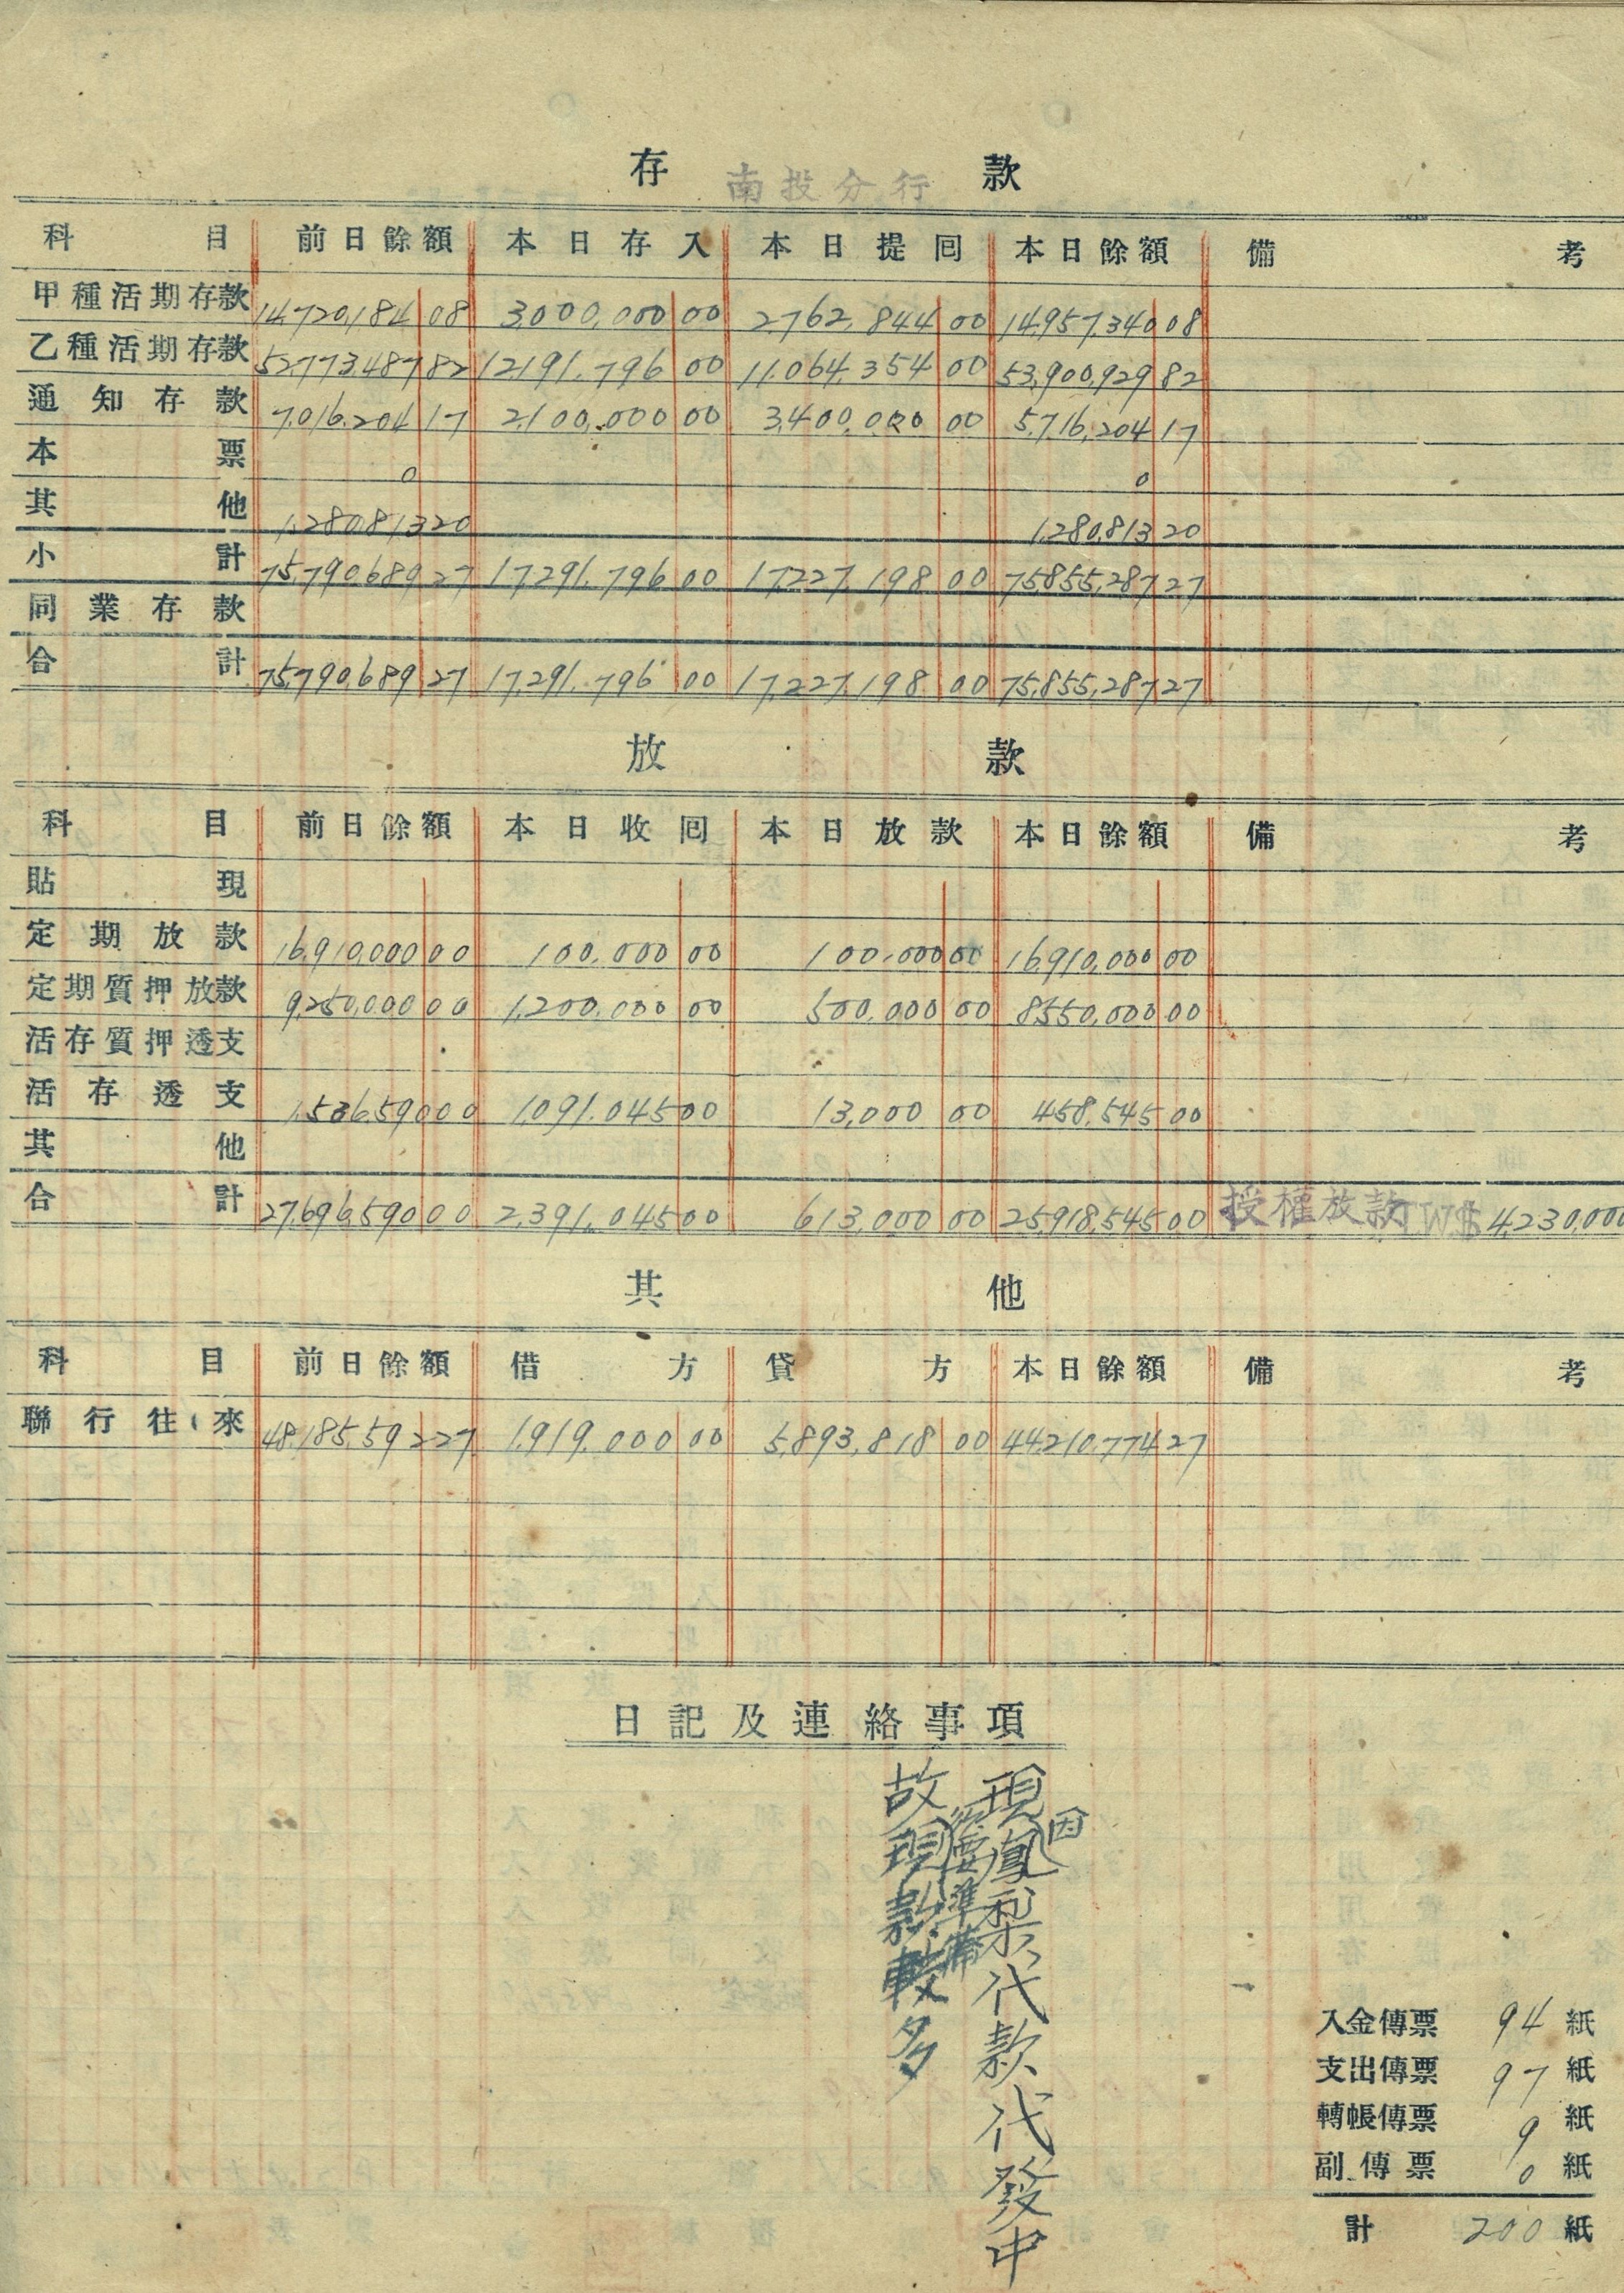 存 款
南投分行
科目 前日餘額 本日存入 本日提回 本日餘額 備考
甲種活期存款 14,720,184 08 3,000,000 00 2,762,844 00 14,957,340 08
乙種活期存款 52,773,487 82 12,191,796 00 11,064,354 00 53,900,929 82
通知存款 7,016,204 17 2,100,000 00 3,400,000 00 5,716,204 17
本票 0 0
其他 1,280,813 20 1,280,813 20
小計 75,790,689 27 17,291,796 00 17,227,198 00 75,855,287 27
同業存款
合計 75,790,689 27 17,291,796 00 17,227,198 00 75,855,287 27
放 款
科目 前日餘額 本日收回 本日放款 本日餘額 備考
貼現
定期放款 16,910,000 00 100,000 00 100,000 00 16,910,000 00
定期質押放款 9,250,000 00 1,200,000 00 500,000 00 8,550,000 00
活存質押透支
活存透支 1,536,590 00 1,091,045 00 13,000 00 458,545 00
其他
合計 27,696,590 00 2,391,045 00 613,000 00 25,918,545 00 授權放款TW$4,230,000
其 他
科目 前日餘額 借方 貸方 本日餘額 備考
聯行往來 48,185,592 27 1,919,000 00 5,893,818 00 44,210,774 27
日記及連絡事項
現因鳳梨代款代發中
需要準備
故現款較多
入金傳票 94 紙
支出傳票 97 紙
轉帳傳票 9 紙
副傳票 0 紙
計 200 紙